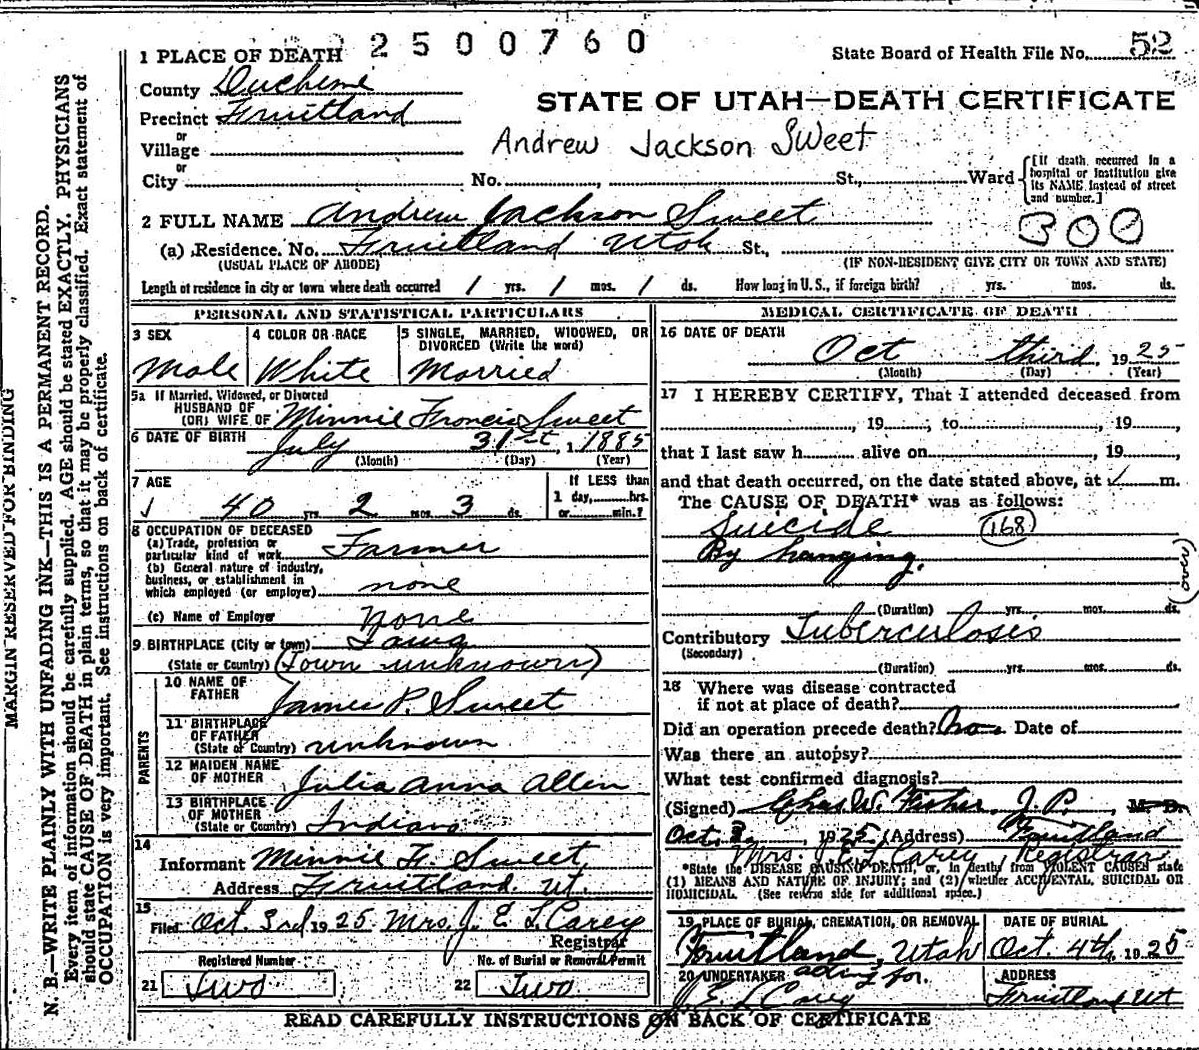 2500760
1 PLACE OF DEATH
State Board of Health File No. 52
County Duchesne
STATE OF UTAH—DEATH CERTIFICATE
Precinct Fruitland
or
Village
Andrew Jackson Sweet
or
City No. , St., Ward
[If death occurred in a hospital or institution give its NAME instead of street and number.]
2 FULL NAME Andrew Jackson Sweet
300
(a) Residence. No. Fruitland Utah St.,
(USUAL PLACE OF ABODE) (IF NON-RESIDENT GIVE CITY OR TOWN AND STATE)
Length of residence in city or town where death occurred / yrs. / mos. / ds. How long in U. S., if foreign birth? yrs. mos. ds.
PERSONAL AND STATISTICAL PARTICULARS
3 SEX
Male
4 COLOR OR RACE
White
5 SINGLE, MARRIED, WIDOWED, OR DIVORCED (Write the word)
Married
5a If Married, Widowed, or Divorced
HUSBAND OF
(OR) WIFE OF Minnie Francis Sweet
6 DATE OF BIRTH July 31st, 1885
(Month) (Day) (Year)
7 AGE
40 yrs. 2 mos. 3 ds.
If LESS than
1 day, hrs.
or min.?
8 OCCUPATION OF DECEASED
(a) Trade, profession or
particular kind of work Farmer
(b) General nature of industry,
business, or establishment in
which employed (or employer) none
(c) Name of Employer None
9 BIRTHPLACE (City or town) Iowa
(State or Country) (Town unknown)
PARENTS
10 NAME OF
FATHER James P. Sweet
11 BIRTHPLACE
OF FATHER
(State or Country) unknown
12 MAIDEN NAME
OF MOTHER Julia Anna Allen
13 BIRTHPLACE
OF MOTHER
(State or Country) Indiana
14
Informant Minnie F. Sweet
Address Fruitland Ut.
15
Filed Oct. 3rd 1925 Mrs. J. E. L. Carey
Registrar
Registered Number No. of Burial or Removal Permit
21 Two 22 Two
MEDICAL CERTIFICATE OF DEATH
16 DATE OF DEATH
Oct third, 1925
(Month) (Day) (Year)
17 I HEREBY CERTIFY, That I attended deceased from
, 19 , to , 19 ,
that I last saw h alive on , 19 ,
and that death occurred, on the date stated above, at m.
The CAUSE OF DEATH* was as follows:
Suicide 168
By hanging.
(over)
(Duration) yrs. mos. ds.
Contributory Tuberculosis
(Secondary)
(Duration) yrs. mos. ds.
18 Where was disease contracted
if not at place of death?
Did an operation precede death? No Date of
Was there an autopsy?
What test confirmed diagnosis?
(Signed) Chas. W. Fisher J. P., M. D.
Oct. 3, 1925 (Address) Fruitland
Mrs. J. E. L. Carey, Registrar
*State the DISEASE CAUSING DEATH, or, in deaths from VIOLENT CAUSES state
(1) MEANS AND NATURE OF INJURY; and (2) whether ACCIDENTAL, SUICIDAL OR
HOMICIDAL. (See reverse side for additional space.)
19 PLACE OF BURIAL, CREMATION, OR REMOVAL
Fruitland, Utah
DATE OF BURIAL
Oct. 4th, 1925
20 UNDERTAKER acting for.
J. E. L. Carey
ADDRESS
Fruitland Ut
READ CAREFULLY INSTRUCTIONS ON BACK OF CERTIFICATE
MARGIN RESERVED FOR BINDING
N. B.—WRITE PLAINLY WITH UNFADING INK—THIS IS A PERMANENT RECORD.
Every item of information should be carefully supplied. AGE should be stated EXACTLY. PHYSICIANS
should state CAUSE OF DEATH in plain terms, so that it may be properly classified. Exact statement of
OCCUPATION is very important. See instructions on back of certificate.